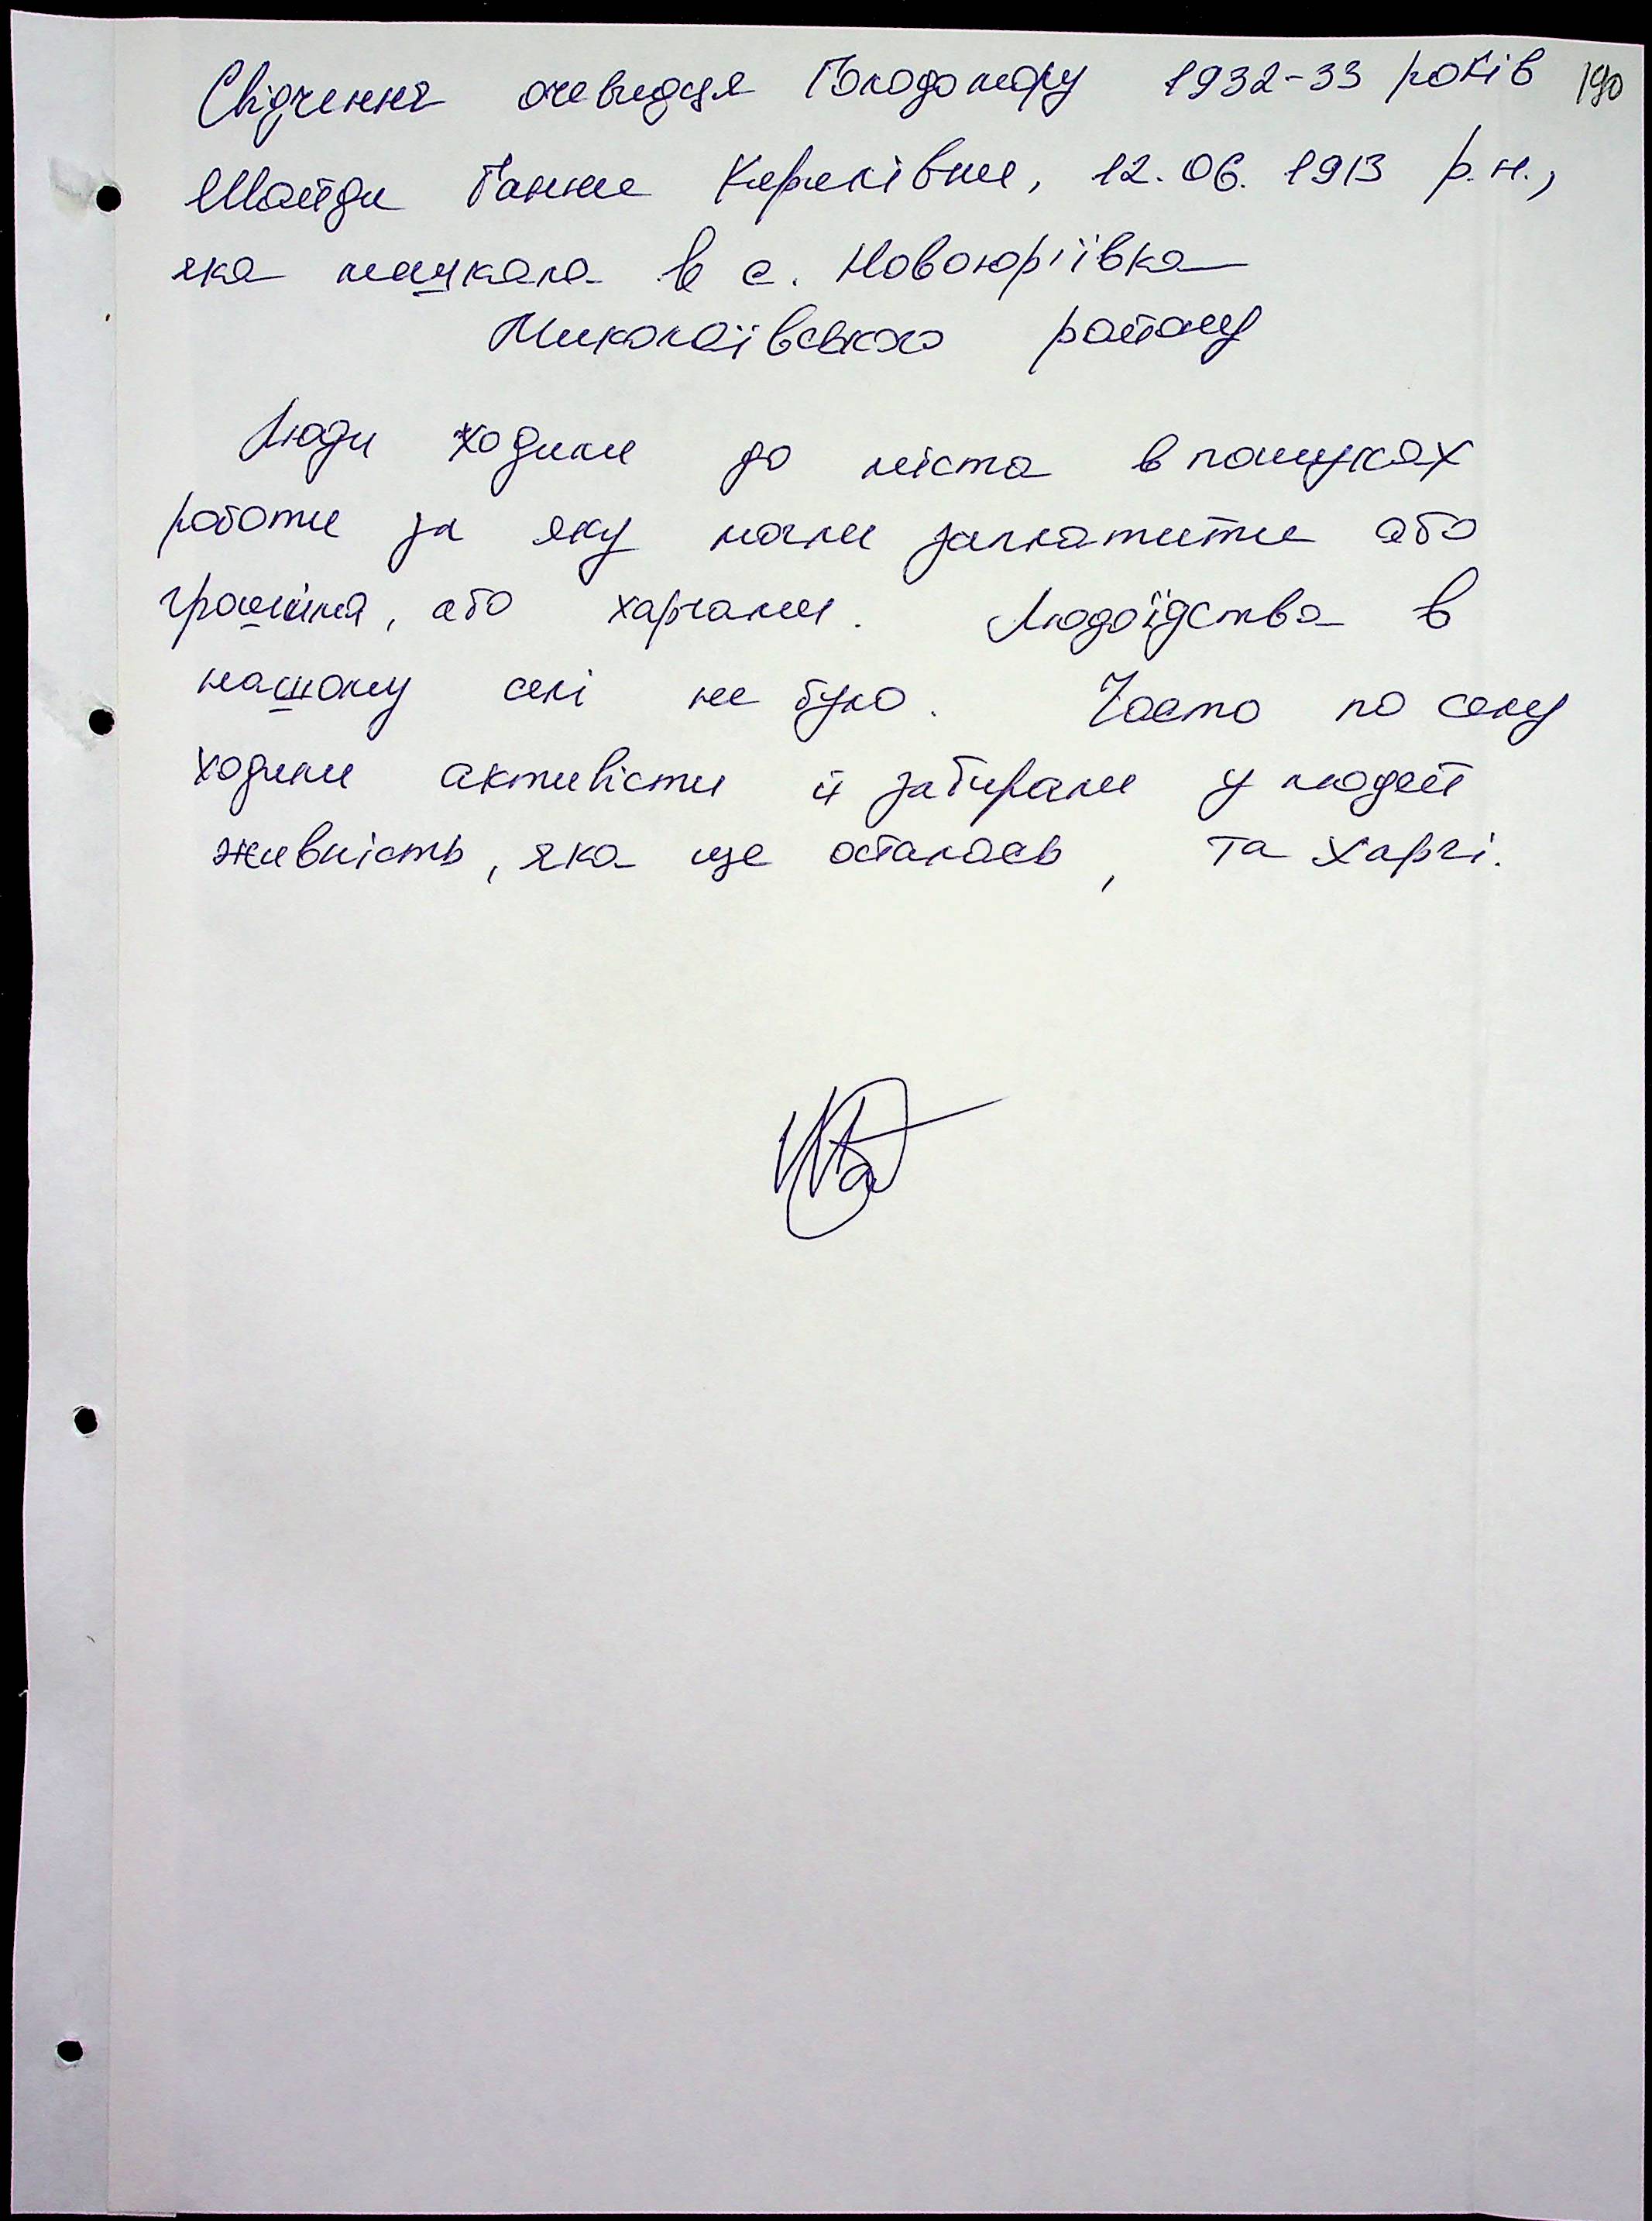 Свідчення очевидця Голодомору 1932-33 років 190
Шайди Ганни Кирилівни, 12.06.1913 р.н.,
яка мешкала в с. Новоюріївка
Миколаївського району
Люди ходили до міста в пошуках
роботи за яку могли заплатити або
грошима, або харчами. Людоїдства в
нашому селі не було. Часто по селу
ходили активісти й забирали у людей
живність, яка ще осталась, та харчі.